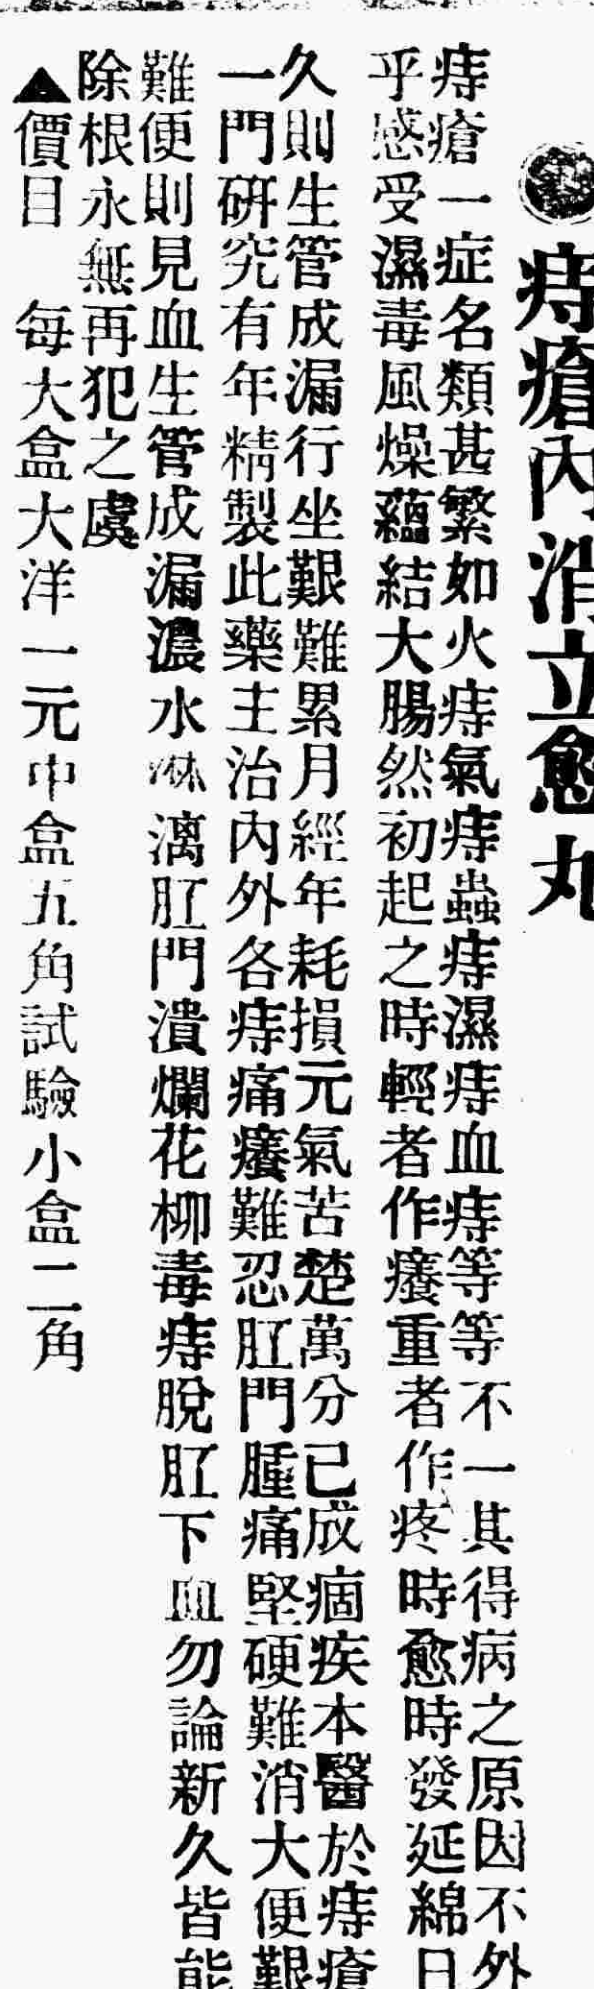 痔瘡內消立愈丸
痔瘡一症名類甚繁如火痔氣痔蟲痔濕痔血痔等等不一其得病之原因不外
乎感受濕毒風燥蘊結大腸然初起之時輕者作癢重者作疼時愈時發延綿日
久則生管成漏行坐艱難累月經年耗損元氣苦楚萬分已成痼疾本醫於痔瘡
一門研究有年精製此藥主治內外各痔痛癢難忍肛門腫痛堅硬難消大便艱
難便則見血生管成漏濃水淋漓肛門潰爛花柳毒痔脫肛下血勿論新久皆能
除根永無再犯之虞
▲價目 每大盒大洋一元中盒五角試驗小盒二角